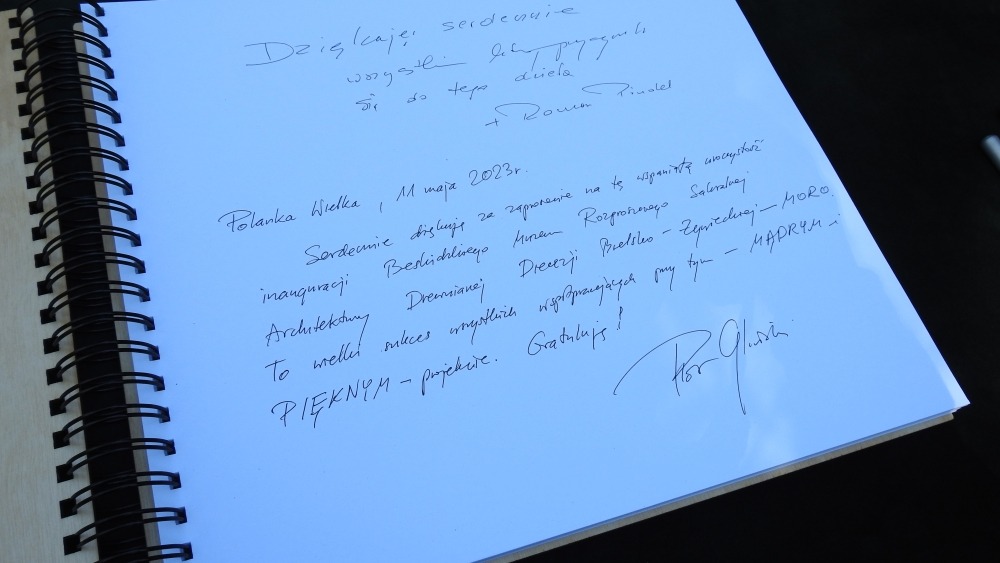 Dziękuję serdecznie
wszystkim
się do tego dzieła
+ Roman Pindel
Polanka Wielka, 11 maja 2023r.
Serdecznie dziękuję za zaproszenie na tę wspaniałą uroczystość
inauguracji Beskidzkiego Muzeum Rozproszonego Sakralnej
Architektury Drewnianej Diecezji Bielsko-Żywieckiej – MORO.
To wielki sukces wszystkich współpracujących przy tym – MĄDRYM i
PIĘKNYM – projekcie. Gratuluję!
Piotr Gliński